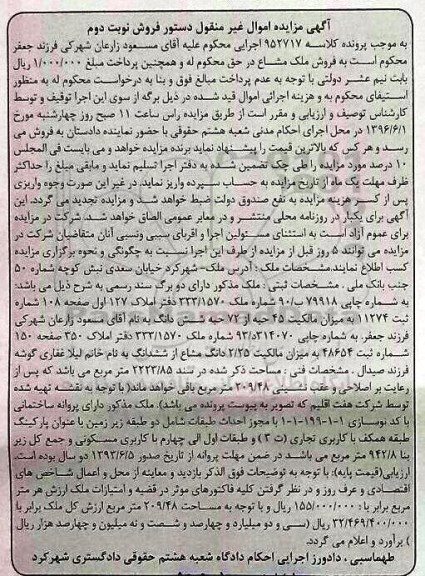 آگهی مزایده اموال غیر منقول دستور فروش نوبت دوم
به موجب پرونده کلاسه ۹۵۲۷۱۷ اجرایی محکوم علیه آقای مسعود زارعان شهرکی فرزند جعفر
محکوم است به فروش ملک مشاع در حق محکوم له و همچنین پرداخت مبلغ ۱/۰۰۰/۰۰۰ ریال
بابت نیم عشر دولتی با توجه به عدم پرداخت مبالغ فوق و بنا به درخواست محکوم له به منظور
استیفای محکوم به و هزینه اجرائی اموال قید شده در ذیل برگه از سوی این اجرا توقیف و توسط
کارشناس توصیف و ارزیابی و مقرر است از طریق مزایده راس ساعت ۱۱ صبح روز چهارشنبه مورخ
۱۳۹۶/۶/۱ در محل اجرای احکام مدنی شعبه هشتم حقوقی با حضور نماینده دادستان به فروش می
رسد و هر کس که بالاترین قیمت را پیشنهاد نماید برنده مزایده خواهد و می بایست فی المجلس
۱۰ درصد مورد مزایده را طی چک تضمین شده به دفتر اجرا تسلیم نماید و مابقی مبلغ را حداکثر
ظرف مهلت یک ماه از تاریخ مزایده به حساب سپرده واریز نماید. در غیر این صورت وجوه واریزی
پس از کسر هزینه مزایده به نفع صندوق دولت ضبط خواهد شد و مزایده تجدید می گردد. این
آگهی برای یکبار در روزنامه محلی منتشر و در معابر عمومی الصاق خواهد شد. شرکت در مزایده
برای عموم آزاد است به استثنای مسئولین اجرا و اقربای سببی ونسبی آنان متقاضیان شرکت در
مزایده می توانند ۵ روز قبل از مزایده از طرف این اجرا نسبت به چگونگی و نحوه برگزاری مزایده
کسب اطلاع نمایند.مشخصات ملک : آدرس ملک- شهرکرد خیابان سعدی نبش کوچه شماره ۵۰
جنب بانک ملی . مشخصات ثبتی : ملک مذکور دارای دو برگ سند رسمی به شرح ذیل می باشد:
به شماره چاپی ۷۹۹۱۸ ب/۹۰ شماره ملک ۳۳۳/۱۵۷۰ دفتر املاک ۱۲۷ اول صفحه ۱۰۸ شماره
ثبت ۱۱۲۷۴ به میزان مالکیت ۴۵ حبه از ۷۲ حبه شش دانگ به نام آقای مسعود زارعان شهرکی
فرزند جعفر. به شماره چاپی ۹۳/د۳۱۴۰۷۰ شماره ملک ۳۳۳/۱۵۷۰ دفتر املاک ۳۵۰ صفحه ۱۵۰
شماره ثبت ۴۸۶۵۴ به میزان مالکیت ۲/۲۵ دانگ مشاع از ششدانگ به نام خانم لیلا غفاری گوشه
فرزند صیدال . مشخصات فنی : مساحت ذکر شده در سند ۲۲۲۳/۸۵ متر مربع می باشد که پس از
رعایت بر اصلاحی و عقب نشینی ۲۰۹/۴۸ متر مربع باقی خواهد ماند( با توجه به نقشه تهیه شده
توسط شرکت هفت اقلیم که تصویر به پیوست پرونده می باشد). ملک مذکور دارای پروانه ساختمانی
با کد نوسازی ۱-۱-۱۹۹-۱-۱ با مجوز احداث طبقات شامل دو طبقه زیر زمین با عنوان پارکینگ
طبقه همکف با کاربری تجاری (ت ۳) و طبقات اول الی چهارم با کاربری مسکونی و جمع کل زیر
بنا ۹۴۲/۸ متر مربع می باشد. در ضمن مهلت پروانه از تاریخ صدور ۱۳۹۲/۶/۵ دو سال بوده است.
ارزیابی(قیمت پایه): با توجه به توضیحات فوق الذکر بازدید و معاینه از محل و اعمال شاخص های
اقتصادی و عرف روز و در نظر گرفتن کلیه فاکتورهای موثر در قضیه و امتیازات ملک ارزش هر متر
مربع برابر با : ۱۵۵/۰۰۰/۰۰۰ ریال و با توجه به مساحت ۲۰۹/۴۸ متر مربع ارزش کل ملک برابر با
۳۲/۴۶۹/۴۰۰/۰۰۰ ریال (سی و دو میلیارد و چهارصد و شصت و نه میلیون و چهارصد هزار ریال
) برآورد و اعلام می گردد.
طهماسبی ، دادورز اجرایی احکام دادگاه شعبه هشتم حقوقی دادگستری شهرکرد